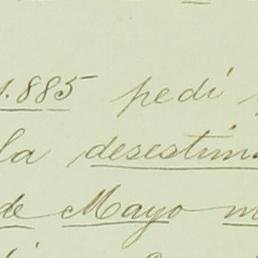 1.885 pedí
la desestim
de Mayo